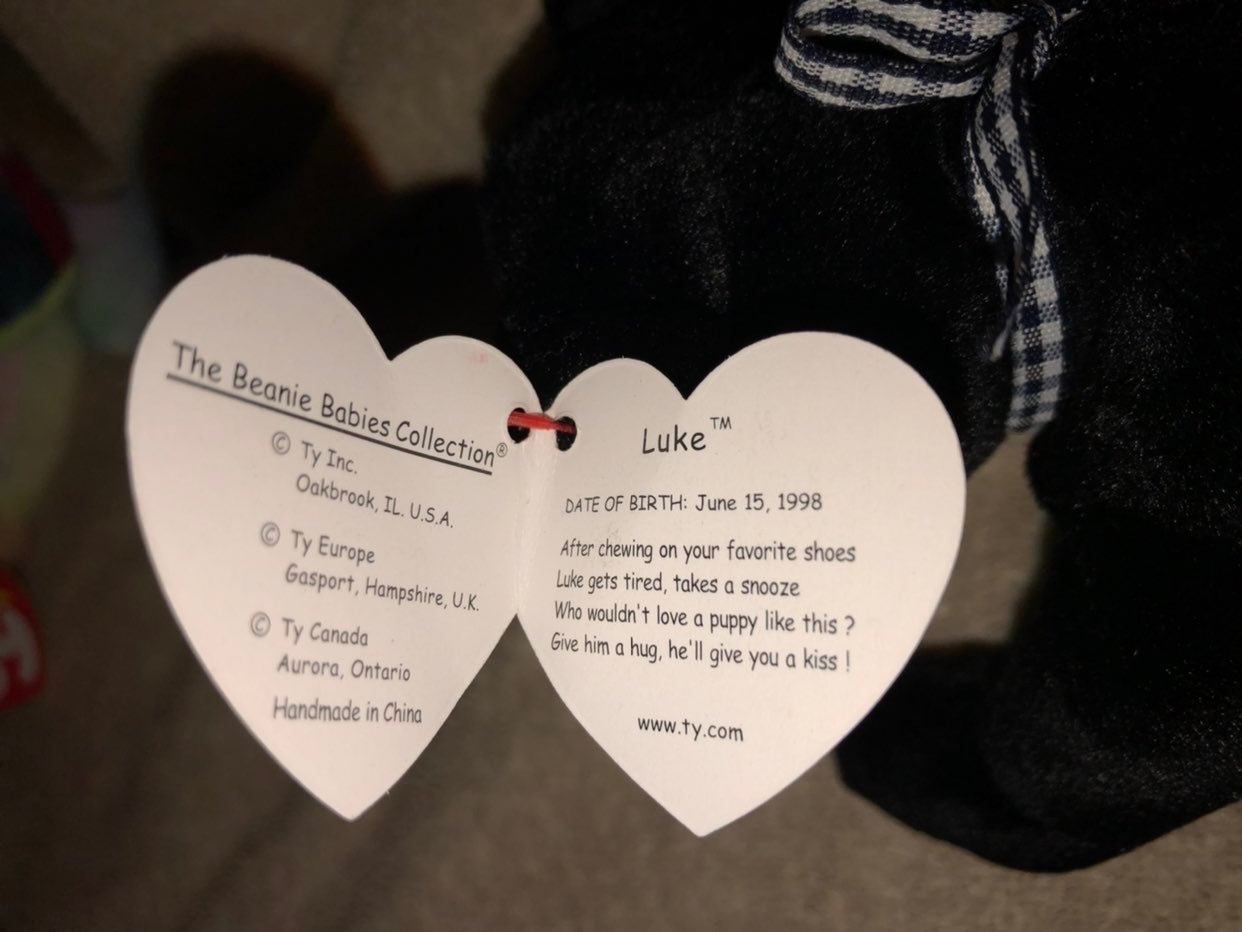 The Beanie Babies Collection®
© Ty Inc.
Oakbrook, IL. U.S.A.
© Ty Europe
Gasport, Hampshire, U.K.
© Ty Canada
Aurora, Ontario
Handmade in China
Luke™
DATE OF BIRTH: June 15, 1998
After chewing on your favorite shoes
Luke gets tired, takes a snooze
Who wouldn't love a puppy like this ?
Give him a hug, he'll give you a kiss !
www.ty.com